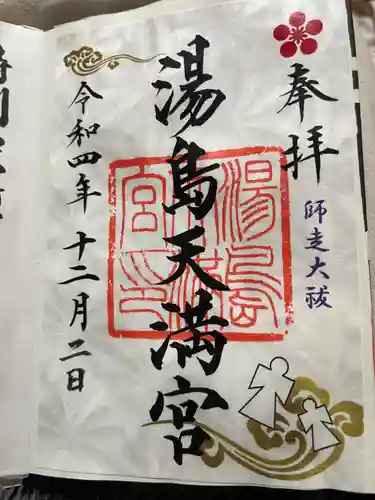 奉拝
師走大祓
湯島天満宮
湯島天満宮印
令和四年十二月二日